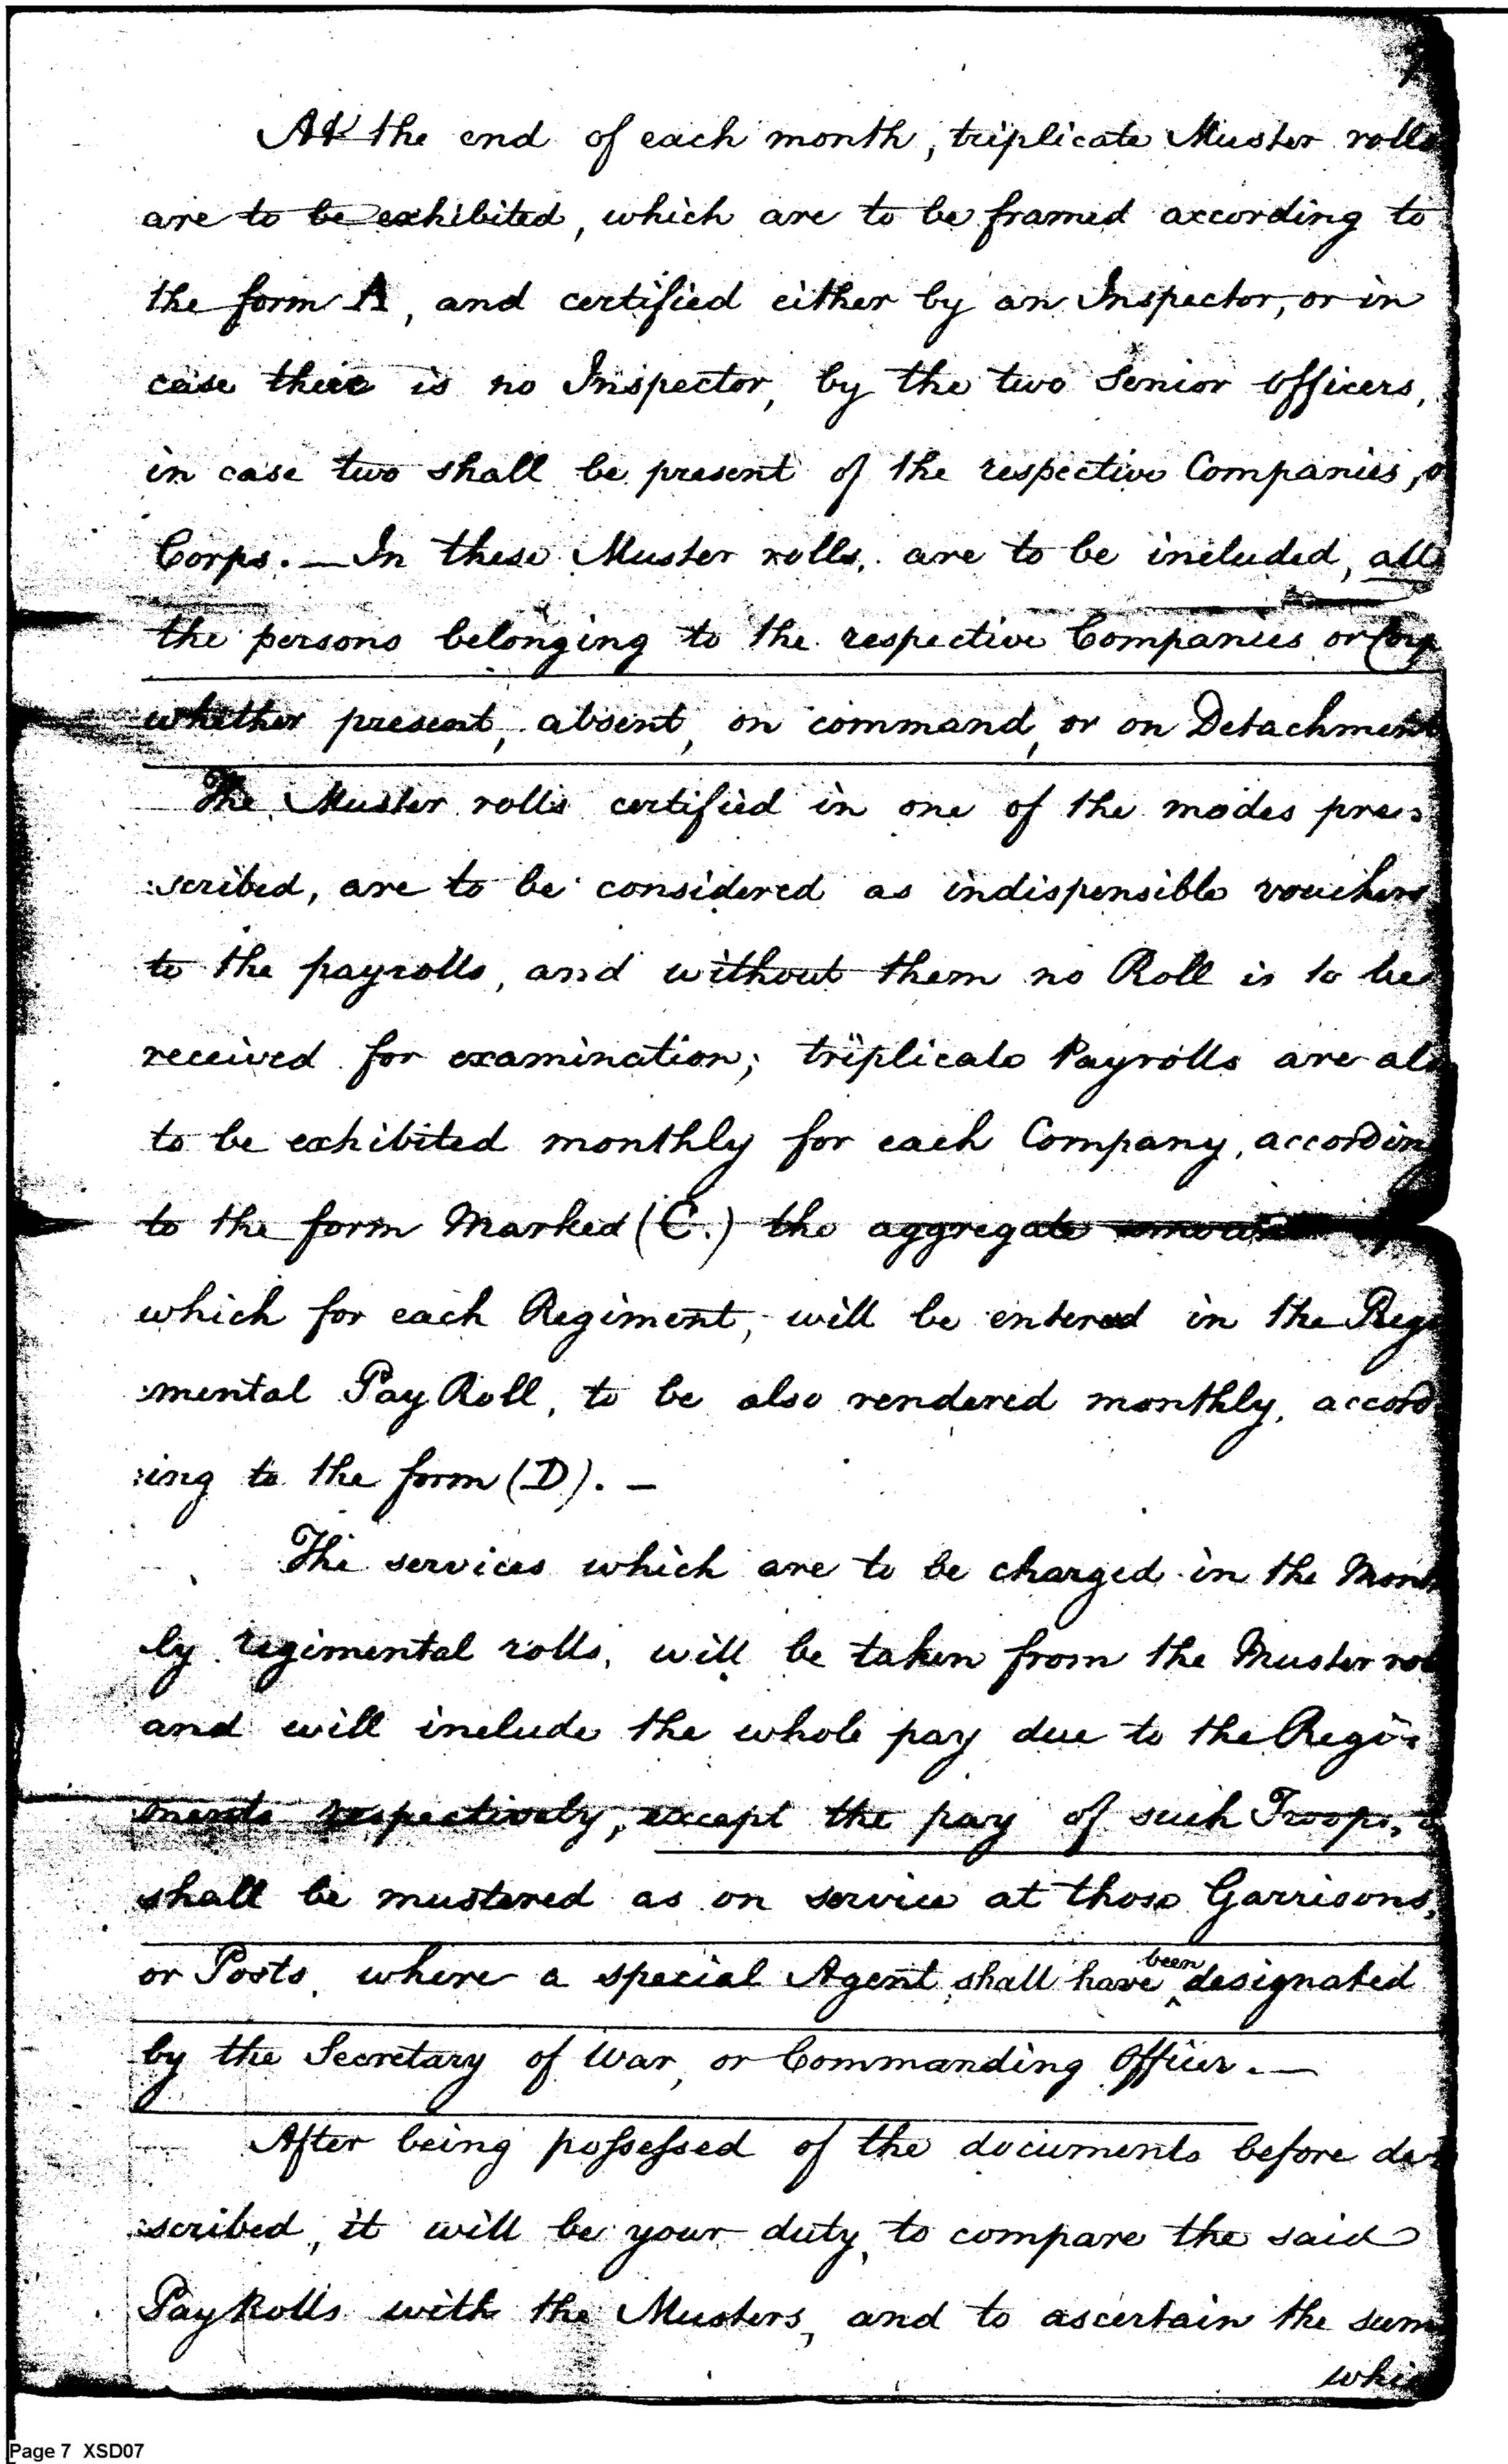 At the end of each month, triplicate Muster rolls
are to be exhibited, which are to be framed according to
the form A, and certified either by an Inspector, or in
case there is no Inspector, by the two Senior officers,
in case two shall be present of the respective Companies, o
Corps. — In these Muster rolls, are to be included, all
the persons belonging to the respective Companies or Corp
whether present, absent, on command, or on Detachment
The Muster rolls certified in one of the modes pre=
:scribed, are to be considered as indispensible vouchers
to the payrolls, and without them no Roll is to be
received for examination; triplicate Payrolls are als
to be exhibited monthly for each Company, according
to the form Marked (C.) the aggregate amount
which for each Regiment, will be entered in the Regi
:mental Pay Roll, to be also rendered monthly, accord
:ing to the form (D). —
The services which are to be charged in the Month
ly regimental rolls, will be taken from the Muster rol
and will include the whole pay due to the Regi=
ments respectively, except the pay of such Troops,
shall be mustered as on service at those Garrisons,
or Posts, where a special Agent shall have been designated
by the Secretary of War, or Commanding Officer. —
After being possessed of the documents before de=
:scribed, it will be your duty, to compare the said
Pay Rolls with the Musters, and to ascertain the sum
whic
Page 7 XSD07